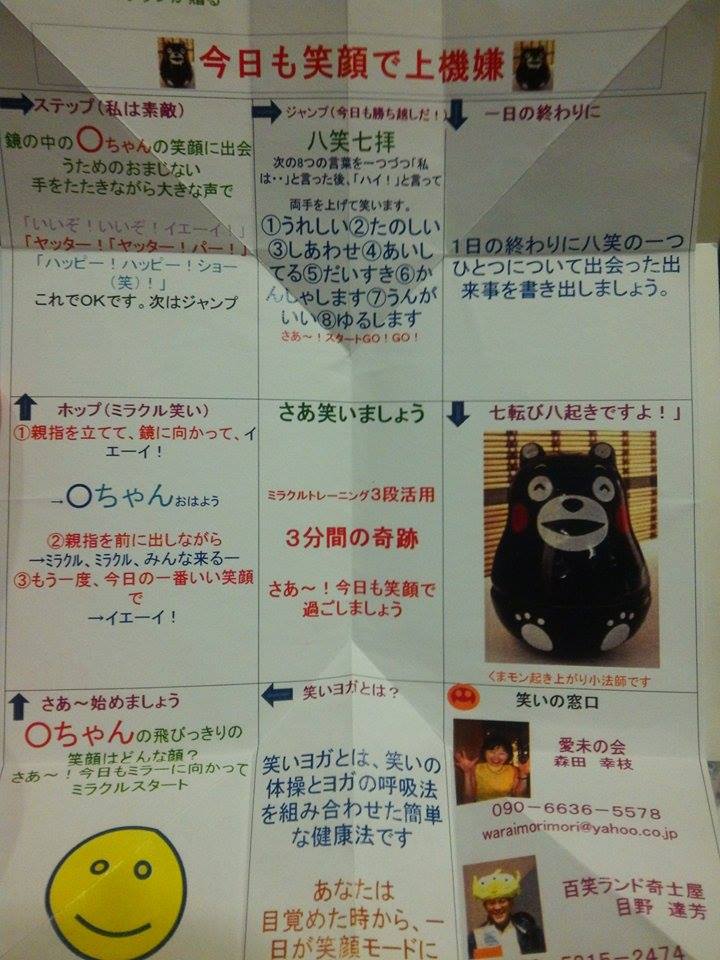 今日も笑顔で上機嫌
ステップ（私は素敵）
鏡の中の〇ちゃんの笑顔に出会
うためのおまじない
手をたたきながら大きな声で
「いいぞ！いいぞ！イエーイ！」
「ヤッター！「ヤッター！パー！」
「ハッピー！ハッピー！ショー
（笑）！」
これでOKです。次はジャンプ
ジャンプ（今日も勝ち越しだ！）
八笑七拝
次の8つの言葉を一つづつ「私
は・・」と言った後、「ハイ！」と言って
両手を上げて笑います。
①うれしい②たのしい
③しあわせ④あいし
てる⑤だいすき⑥か
んしゃします⑦うんが
いい⑧ゆるします
さあ～！スタートGO！GO！
一日の終わりに
1日の終わりに八笑の一つ
ひとつについて出会った出
来事を書き出しましょう。
ホップ（ミラクル笑い）
①親指を立てて、鏡に向かって、イ
エーイ！
→〇ちゃんおはよう
②親指を前に出しながら
→ミラクル、ミラクル、みんな来るー
③もう一度、今日の一番いい笑顔
で
→イエーイ！
さあ笑いましょう
ミラクルトレーニング3段活用
3分間の奇跡
さあ～！今日も笑顔で
過ごしましょう
七転び八起きですよ！」
くまモン起き上がり小法師です
さあ～始めましょう
〇ちゃんの飛びっきりの
笑顔はどんな顔？
さあ～！今日もミラーに向かって
ミラクルスタート
笑いヨガとは？
笑いヨガとは、笑いの
体操とヨガの呼吸法
を組み合わせた簡単
な健康法です
あなたは
目覚めた時から、一
日が笑顔モードに
笑いの窓口
愛未の会
森田　幸枝
090－6636－5578
waraimorimori@yahoo.co.jp
百笑ランド奇士屋
目野　達芳
5315－2474